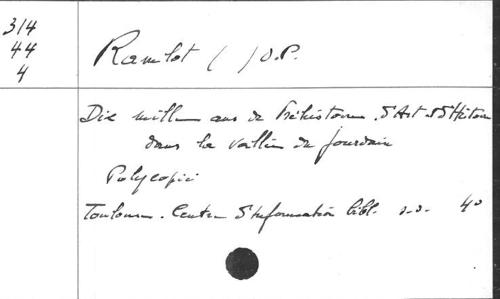 314
44
4
Ramlot ( ) O.P.
Dix mille ans de Préhistoire, d'Art et d'Histoire
dans la vallée du Jourdain
Polycopié
Toulouse. Centre d'Information bibl. s.d. 4°